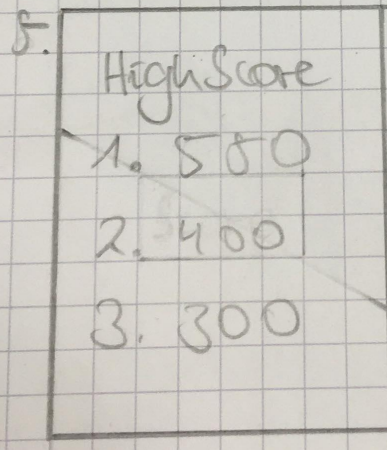 5.
HighScore
1. 550
2. 400
3. 300